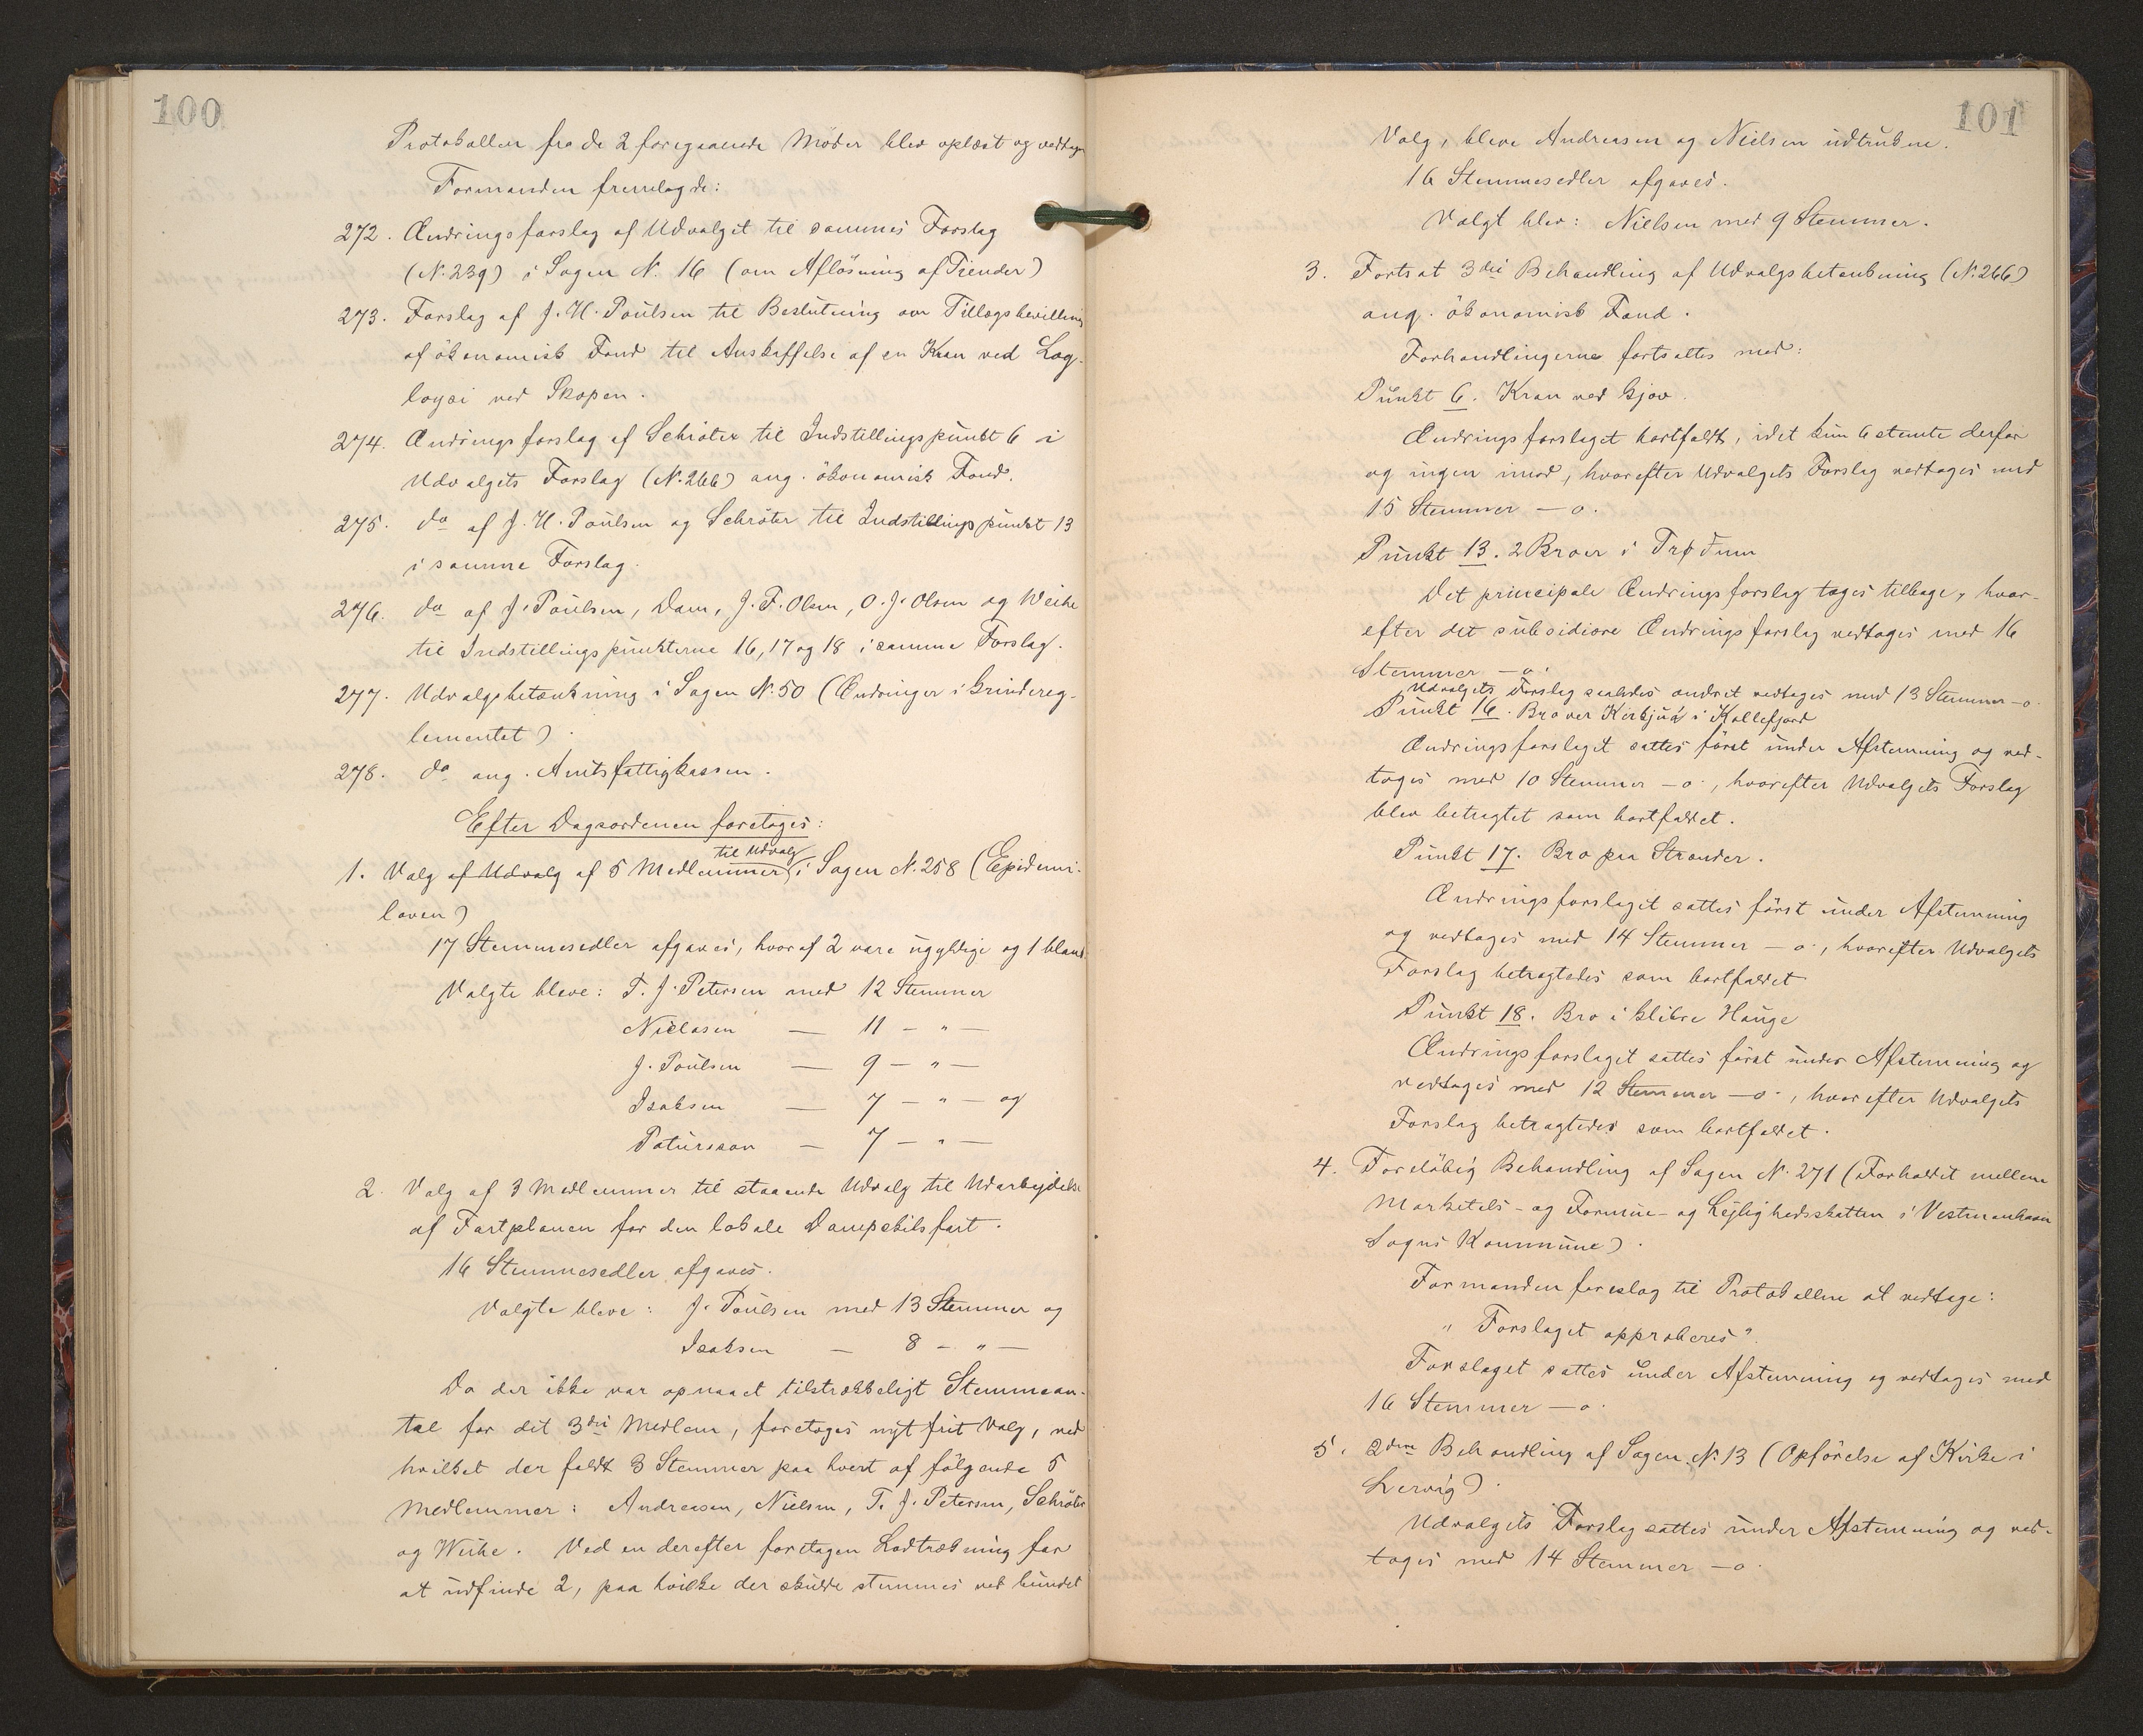 100
Protokollen fra de 2 foregaaende Möder blev oplæst og vedtagen
Formanden fremlagde:
272. Ændringsforslag af Udvalget til sammes Forslag
(N. 239) i Sagen N. 16 (om Aflösning af Tiender)
273. Forslag af J. H. Poulsen til Beslutning om Tillægsbevilling
af ökonomisk Fond til Anskaffelse af en Kran ved Lag-
loysi ved Skopen.
274. Ændringsforslag af Schröter til Indstillingspunkt 6 i
Udvalgets Forslag (N. 266) ang. ökonomisk Fond.
275. do af J. H. Poulsen og Schröter til Indstillingspunkt 13
i samme Forslag.
276. do af J. Poulsen, Dam, J. F. Olsen, O. J. Olsen og Weihe
til Indstillingspunkterne 16, 17 og 18 i samme Forslag.
277. Udvalgsbetænkning i Sagen N. 50 (Ændringer i Grindereg-
lementet).
278. do ang. Amtsfattigkassen.
Efter Dagsordenen foretoges:
1. Valg af Udvalg af 5 Medlemmer til Udvalg i Sagen N. 258 (Epidemi-
loven)
17 Stemmesedler afgaves, hvoraf 2 vare ugyldige og 1 blank
Valgte bleve: T. J. Petersen med 12 Stemmer
Nielsen — 11 — " —
J. Poulsen — 9 — " —
Isaksen — 7 — " — og
Patursson — 7 — " —
2. Valg af 3 Medlemmer til staaende Udvalg til Udarbejdelse
af Fartplanen for den lokale Dampskibsfart.
16 Stemmesedler afgaves.
Valgte bleve: J. Poulsen med 13 Stemmer og
Isaksen — 8 — " —
Da der ikke var opnaaet tilstrækkeligt Stemmean-
tal for det 3die Medlem, foretoges nyt frit Valg, ved
hvilket der faldt 3 Stemmer paa hvert af fölgende 5
Medlemmer: Andreasen, Nielsen, T. J. Petersen, Schröter
og Weihe. Ved en derefter foretagen Lodtrækning for
at udfinde 2, paa hvilke der skulde stemmes ved bundet
101
Valg, bleve Andreasen og Nielsen udtrukne.
16 Stemmesedler afgaves.
Valgt blev: Nielsen med 9 Stemmer.
3. Fortsat 3die Behandling af Udvalgsbetænkning (N. 266)
ang. ökonomisk Fond.
Forhandlingerne fortsattes med:
Punkt 6. Kran ved Gjov.
Ændringsforslaget bortfaldt, idet kun 6 stemte derfor
og ingen imod, hvorefter Udvalgets Forslag vedtoges med
15 Stemmer — o.
Punkt 13. 2 Broer i Trøðum
Det principale Ændringsforslag toges tilbage, hvor-
efter det subsidiære Ændringsforslag vedtoges med 16
Stemmer — o.
Udvalgets Forslag saaledes ændret vedtoges med 13 Stemmer — o.
Punkt 16. Bro over Kirkjuá i Kollefjord
Ændringsforslaget sattes först under Afstemning og ved-
toges med 10 Stemmer — o., hvorefter Udvalgets Forslag
blev betragtet som bortfaldet.
Punkt 17. Bro paa Strender.
Ændringsforslaget sattes först under Afstemning
og vedtoges med 14 Stemmer — o., hvorefter Udvalgets
Forslag betragtedes som bortfaldet
Punkt 18. Bro i Glibre Hauge
Ændringsforslaget sattes först under Afstemning og
vedtoges med 12 Stemmer — o., hvorefter Udvalgets
Forslag betragtedes som bortfaldet.
4. Forelöbig Behandling af Sagen N. 271 (Forholdet mellem
Marketals- og Formue- og Lejlighedsskatten i Vestmanhavn
Sogns Kommune).
Formanden foreslog til Protokollen at vedtage:
"Forslaget approberes".
Forslaget sattes under Afstemning og vedtoges med
16 Stemmer — o.
5. 2den Behandling af Sagen N. 13 (Opförelse af Kirke i
Lervig).
Udvalgets Forslag sattes under Afstemning og ved-
toges med 14 Stemmer — o.